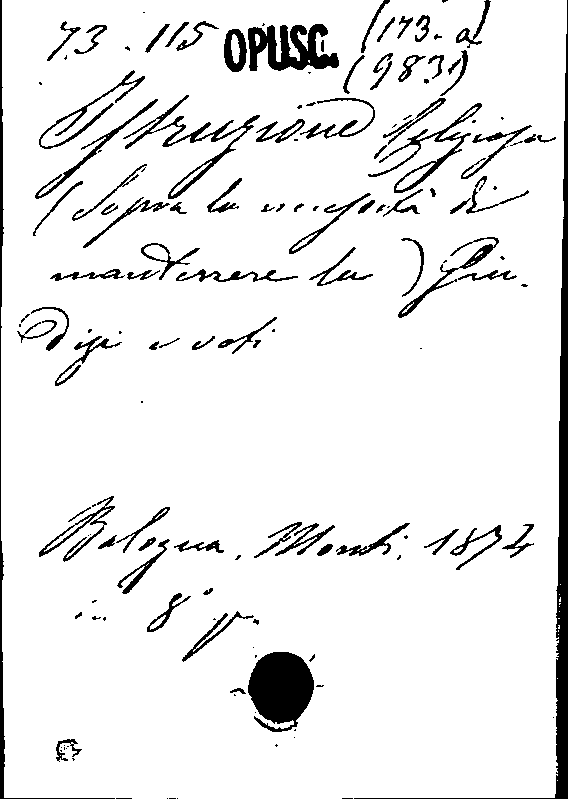 73.115 OPUSC. (173. a)
(983)
Istruzione religiosa
(Sopra la necessità di
mantenere la) Giu-
dizi e voti
Bologna, Monti, 1874
in 8° p.